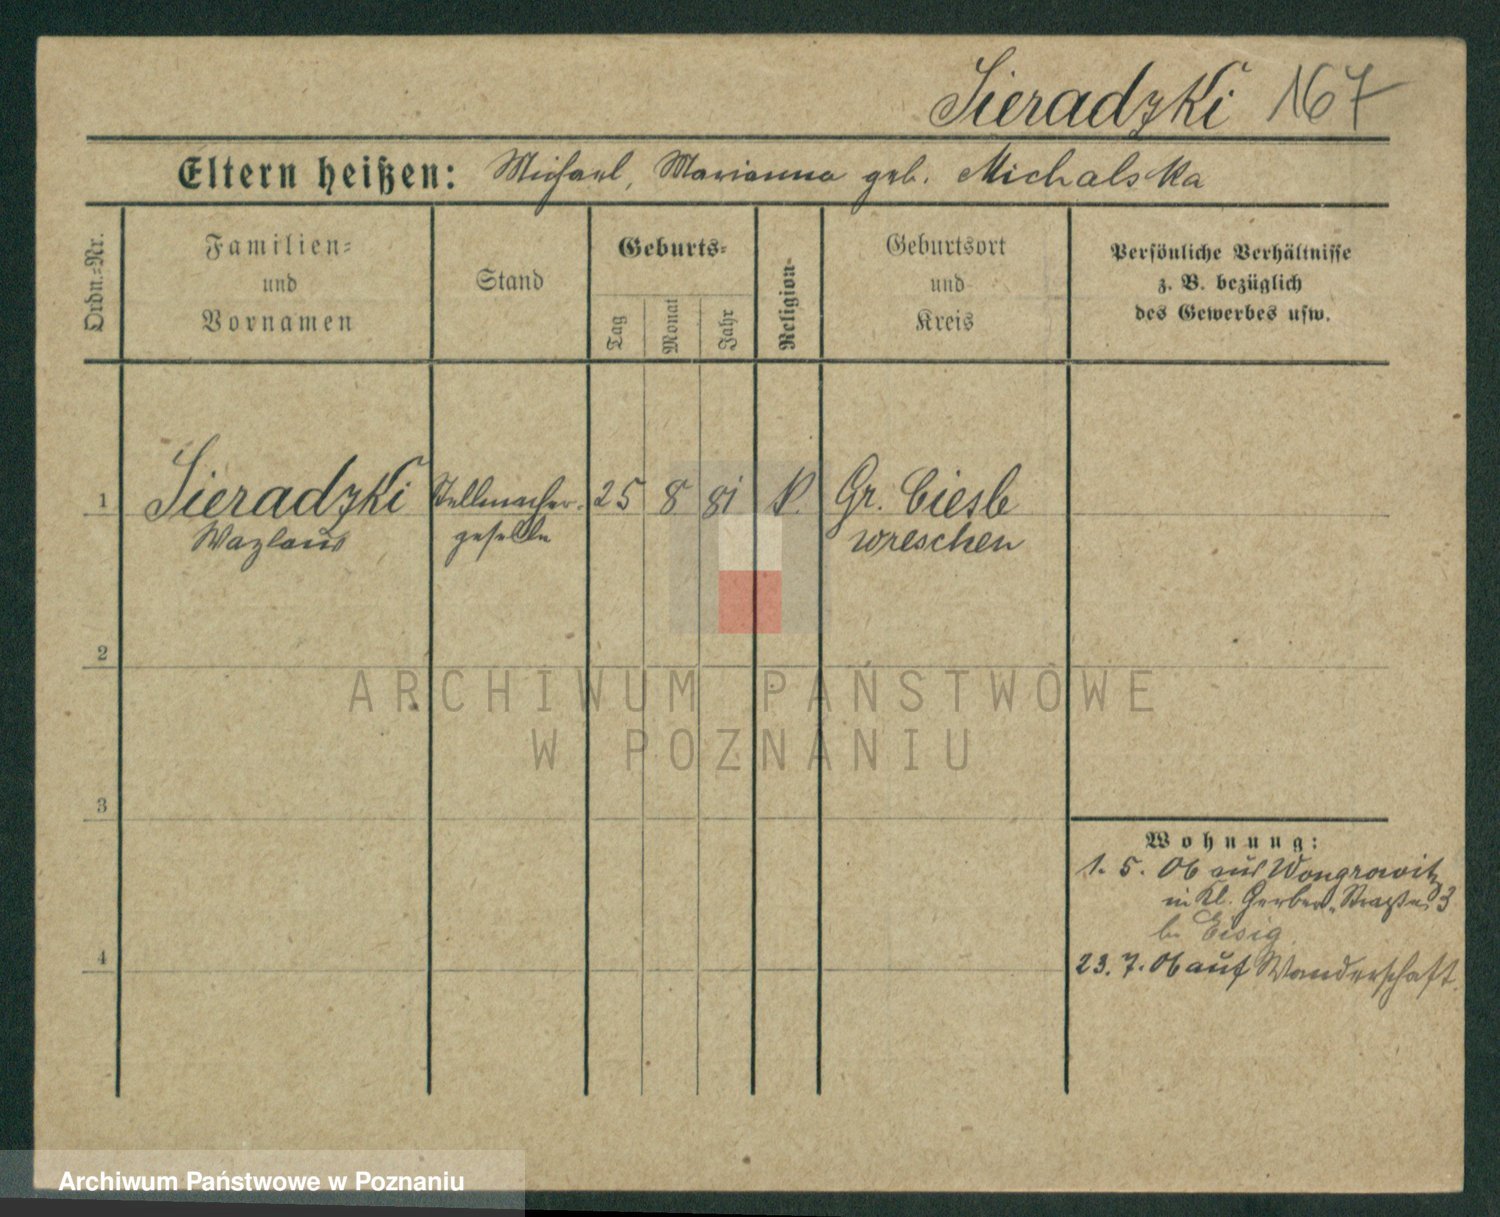 Sieradzki 167
Eltern heißen: Michael, Marianna geb. Michalska
Ordn.=Nr.
Familien=
und
Vornamen
Stand
Geburts=
Tag
Monat
Jahr
Religion
Geburtsort
und
Kreis
Persönliche Verhältnisse
z. B. bezüglich
des Gewerbes usw.
1 Sieradzki Stellmacher- 25 8 81 k. Gr. Ciesle
Wazlaus geselle Wreschen
2
ARCHIWUM PAŃSTWOWE
W POZNANIU
3
Wohnung:
1. 5. 06 aus Wongrowitz
in Kl. Gerber-Straße 3
b. Eisig
4
23. 7. 06 auf Wanderschaft.
Archiwum Państwowe w Poznaniu